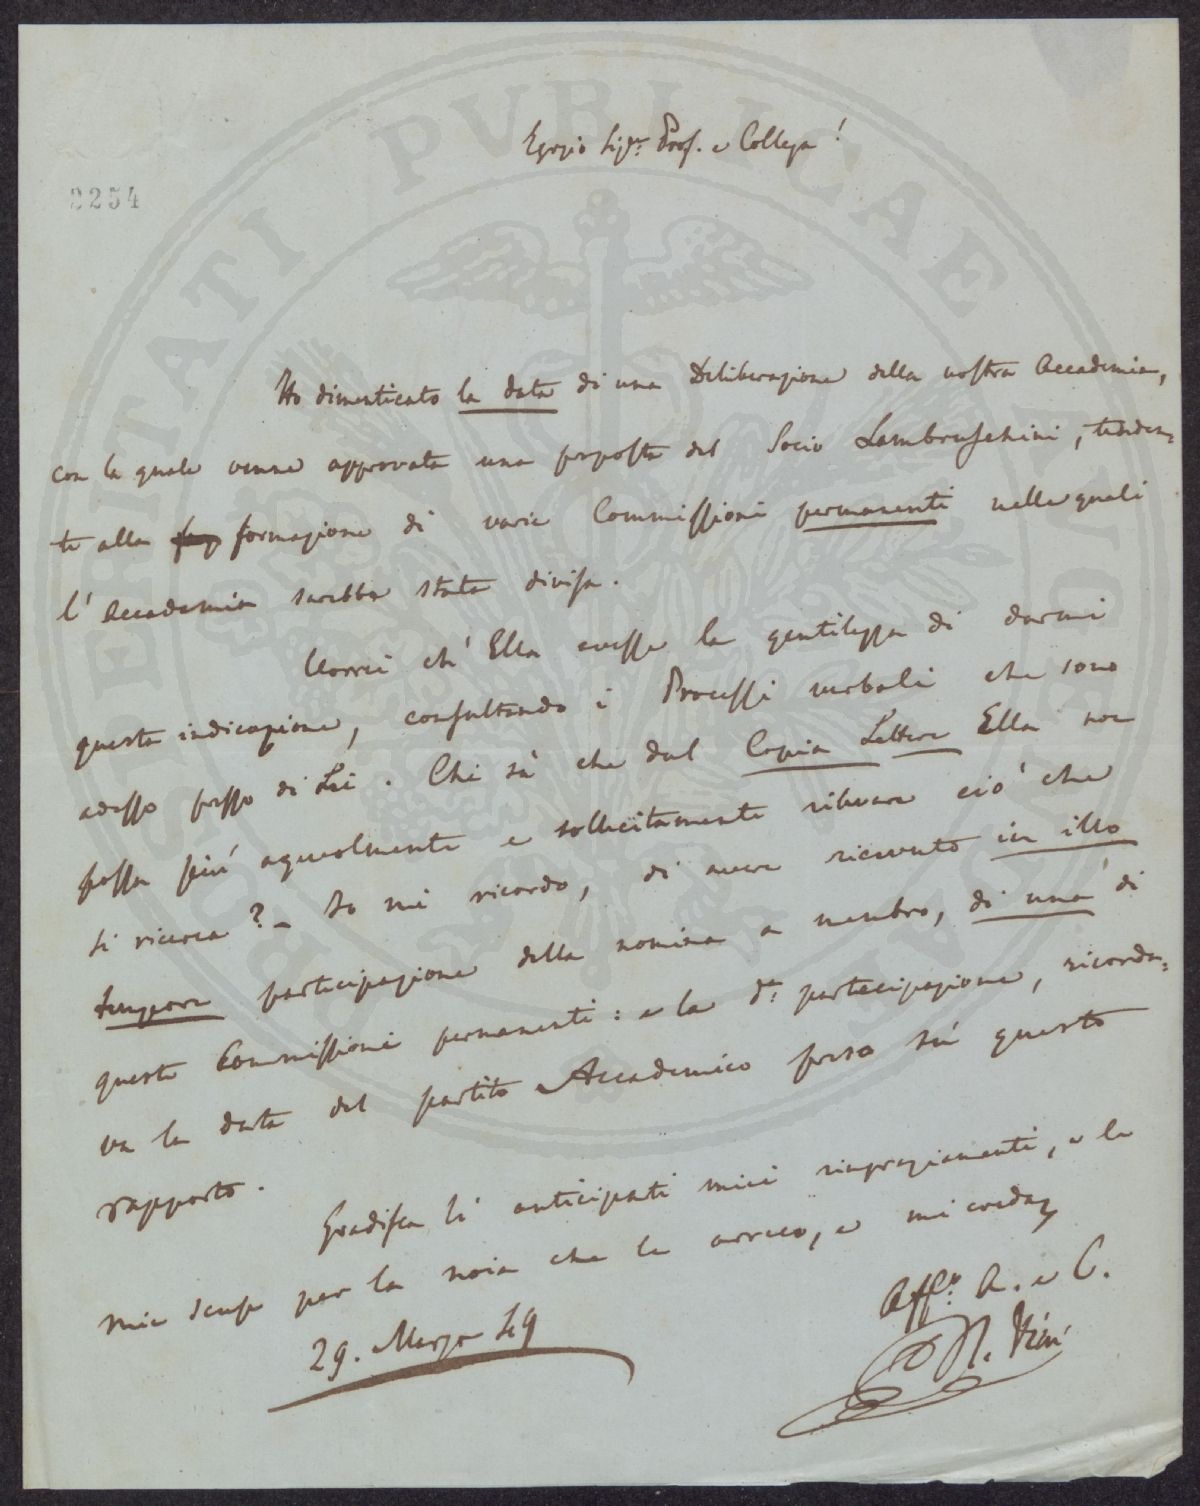 PROSPERITATI PVBLICAE
2254
Egregio Sigr. Prof. e Collega!
Ho dimenticato la data di una Deliberazione della nostra Accademia,
con la quale venne approvata una proposta del Socio Lambruschini, tenden=
te alla formazione di varie Commissioni permanenti nelle quali
l'Accademia sarebbe stata divisa.
Vorrei ch'Ella avesse la gentilezza di darmi
questa indicazione, consultando i Processi verbali che sono
adesso presso di Lei. Chi sà che dal Copia Lettere Ella non
possa più agevolmente e sollecitamente rilevare ciò che
si ricerca? - Io mi ricordo, di avere ricevuto in illo
tempore partecipazione della nomina a membro, di una di
queste Commissioni permanenti: e la da. partecipazione, ricorda=
va la data del partito Accademico preso su questo
rapporto.
Gradisca li anticipati miei ringraziamenti, e le
mie scuse per la noia che le arreco, e mi creda
29. Marzo 49
Affo. A. e C.